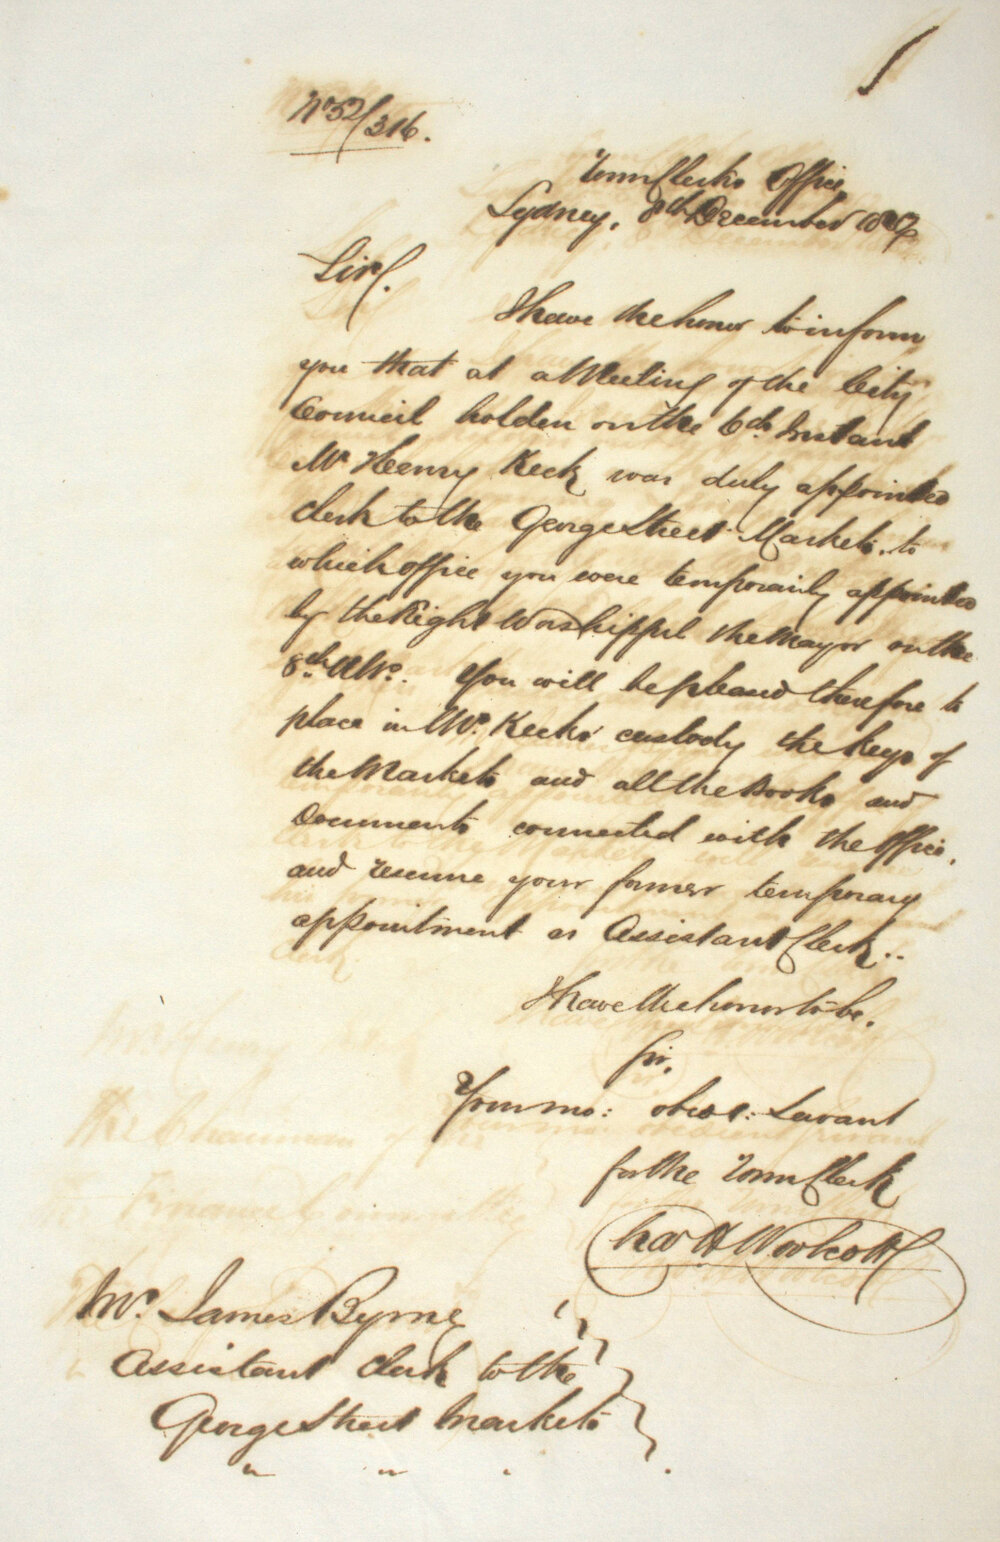 No 52/316.
Town Clerks Office
Sydney, 8th December 1852
Sir,
I have the honor to inform
you that at a Meeting of the City
Council holden on the 6th Instant
Mr Henry Keck was duly appointed
clerk to the George Street Markets, to
which office you were temporarily appointed
by the Right Worshipful the Mayor on the
8th Ulto. You will be pleased therefore to
place in Mr. Kecks custody the keys of
the Markets and all the Books and
Documents connected with the Office,
and resume your former temporary
appointment as Assistant Clerk..
I have the honor to be,
Sir,
Your mo: obedt: Servant
for the Town Clerk
Chas H Woolcott
Mr. James Byrne
Assistant Clerk to the
George Street Markets